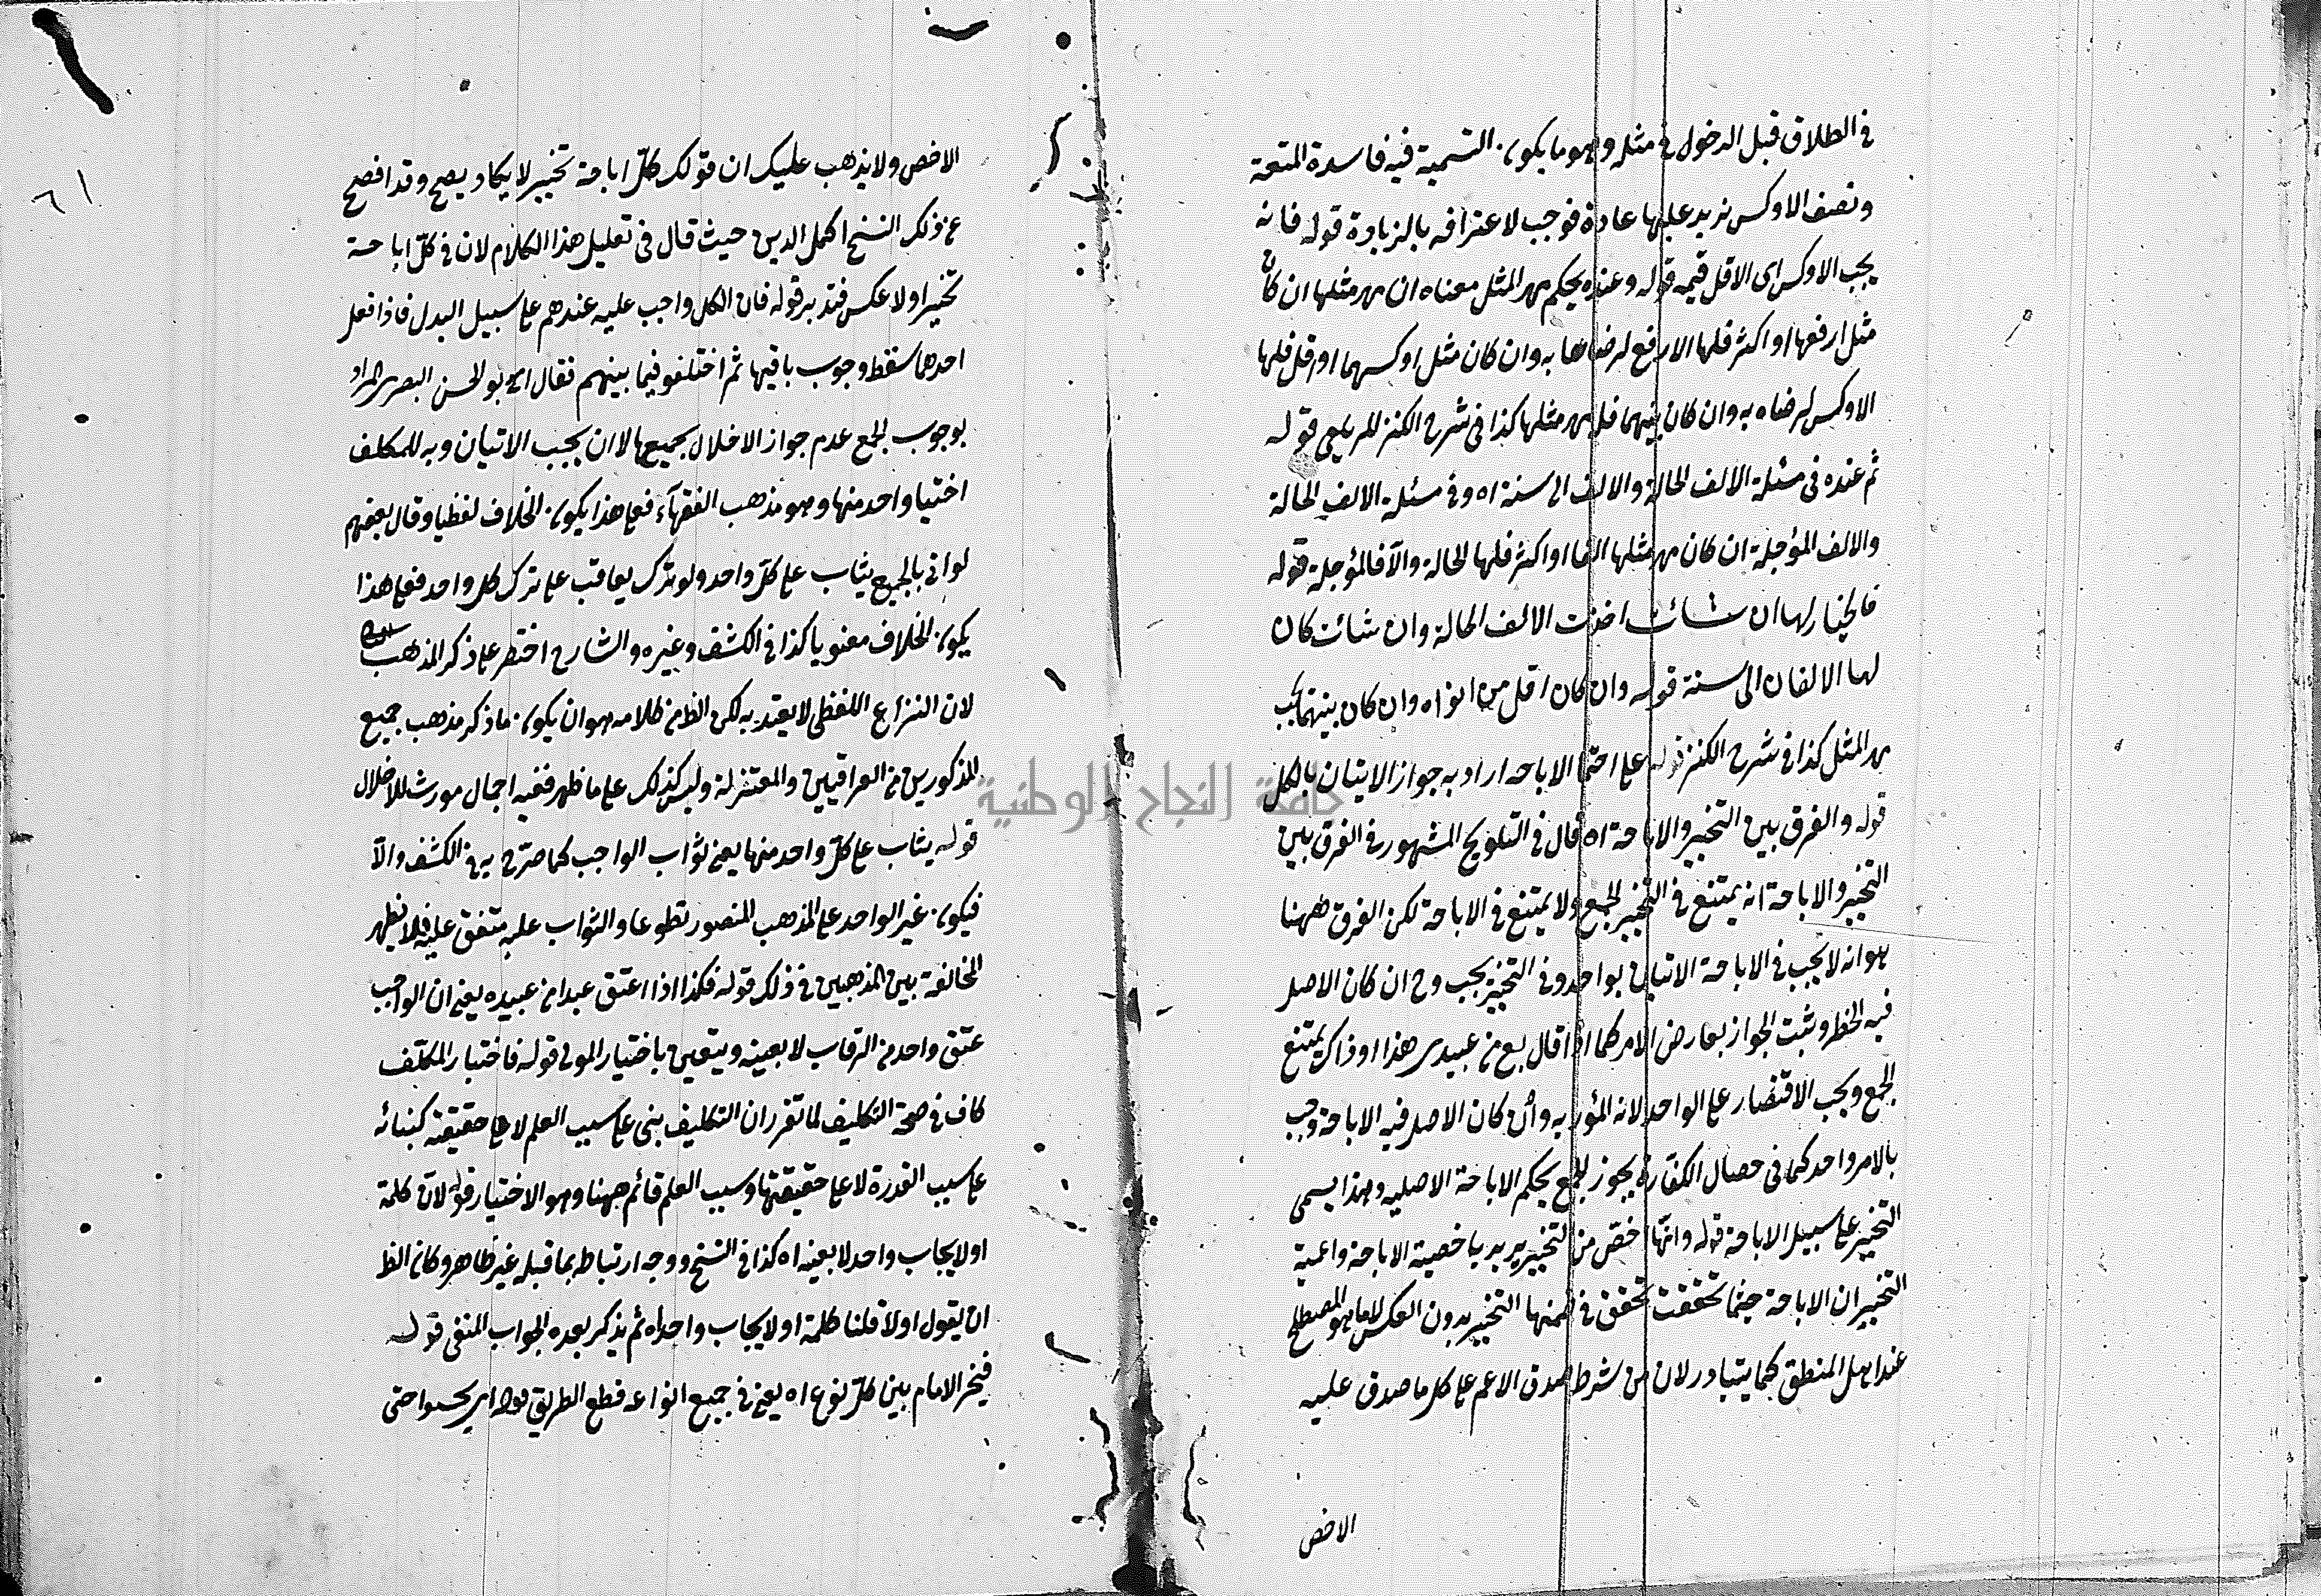 في الطلاق قبل الدخول في مثله وهو ما يكون التسمية فيه فاسدة المتعة
ونصف الاوكس يزيد عليها عادة فوجب لاعترافه بالزيادة قوله فانه
يجب الاوكس اى الاقل قيمه قوله وعنده يحكم مهر المثل معناه ان مهر مثلها ان كان
مثل ارفعها او اكثر فلها الارفع لرضاها به وان كان مثل اوكسهما او اقل فلها
الاوكس لرضاه به وان كان بينهما فلها مهر مثلها كذا في شرح الكنز للزيلعي قوله
ثم عنده في مسئلة الالف الحالة والالف الى سنة اه وفي مسئلة الالف الحالة
والالف المؤجلة ان كان مهر مثلها الفا او اكثر فلها الحالة والا فالمؤجلة قوله
فالخيار لها ان شائت اخذت الالف الحالة وان شائت كان
لها الالفان الى سنة قوله وان كان اقل من اه وان كان بينهما يجب
مهر المثل كذا في شرح الكنز قوله على احتمال الاباحه اراد به جواز الاتيان بالكل
قوله والفرق بين التخيير والاباحة اه قال في التلويح المشهور في الفرق بين
التخيير والاباحة انه يمتنع في التخيير الجمع ولا يمتنع في الاباحة لكن الفرق ههنا
هو انه لا يجب في الاباحة الاتيان بواحد وفي التخيير يجب وح ان كان الاصل
فيه الحظر وثبت الجواز بعارض الامر كما اذا قال بع من عبيدى هذا او ذاك يمتنع
الجمع ويجب الاقتصار على الواحد لانه المأمور به وان كان الاصل فيه الاباحة وجب
بالامر واحد كما في خصال الكفارة يجوز الجمع بحكم الاباحة الاصليه وهذا يسمى
التخيير على سبيل الاباحة قوله وانها اخص من التخيير يريد باخصية الاباحة واعمية
التخيير ان الاباحة حيثما تحققت تحقق في ضمنها التخيير بدون العكس لا ما هو المصطلح
عند اهل المنطق كما يتبادر لان من شرط صدق الاعم على كل ما صدق عليه
الاخص
الاخص ولا يذهب عليك ان قولك كل اباحة تخيير لا يكاد يصح وقد افصح
عن ذلك الشيخ اكمل الدين حيث قال في تعليل هذا الكلام لان في كل اباحة
تخييرا ولا عكس فتدبر قوله فان الكل واجب عليه عندهم على سبيل البدل فاذا فعل
احدهما سقط وجوب باقيها ثم اختلفو فيما بينهم فقال ابو الحسن البصرى المراد
بوجوب الجمع عدم جواز الاخلال بجميعها لا ان يجب الاتيان وبه للمكلف
اختيار واحد منها وهو مذهب الفقهاء فعلى هذا يكون الخلاف لفظيا وقال بعضهم
لو اتى بالجميع يثاب على كل واحد ولو ترك يعاقب على ترك كل واحد فعلى هذا
يكون الخلاف معنويا كذا في الكشف وغيره والشارح اختصر على ذكر المذهب
لان النزاع اللفظى لا يعتد به لكن الظ من كلامه هو ان يكون ما ذكر مذهب جميع
المذكورين من العراقيين والمعتزلة وليس كذلك على ما ظهر ففيه اجمال مورث للاخلال
قوله يثاب على كل واحد منها يعنى ثواب الواجب كما صرح به في الكشف والا
فيكون غير الواحد على المذهب المنصور تطوعا والثواب عليه متفق عليه فلا يظهر
المخالفة بين المذهبين في ذلك قوله فكذا اذا اعتق عبدا من عبيده يعنى ان الواجب
عتق واحد من الرقاب لا بعينه ويتعين باختيار المولى قوله فاختيار المكلف
كاف في صحة التكليف لما تقرر ان التكليف يبنى على سبب العلم لا على حقيقته كبنائه
على سبب القدرة لا على حقيقتها وسبب العلم قائم ههنا وهو الاختيار قوله لان كلمة
او لايجاب واحد لا بعينه اه كذا في النسخ ووجه ارتباط بما قبله غير ظاهر وكان الظ
ان يقول اولا قلنا كلمة او لايجاب واحد اه ثم يذكر بعده الجواب المنفى قوله
فيخير الامام بين كل نوع اه يعنى في جميع انواعه قطع الطريق قوله اى يحبسوا حتى
جامعة النجاح الوطنية